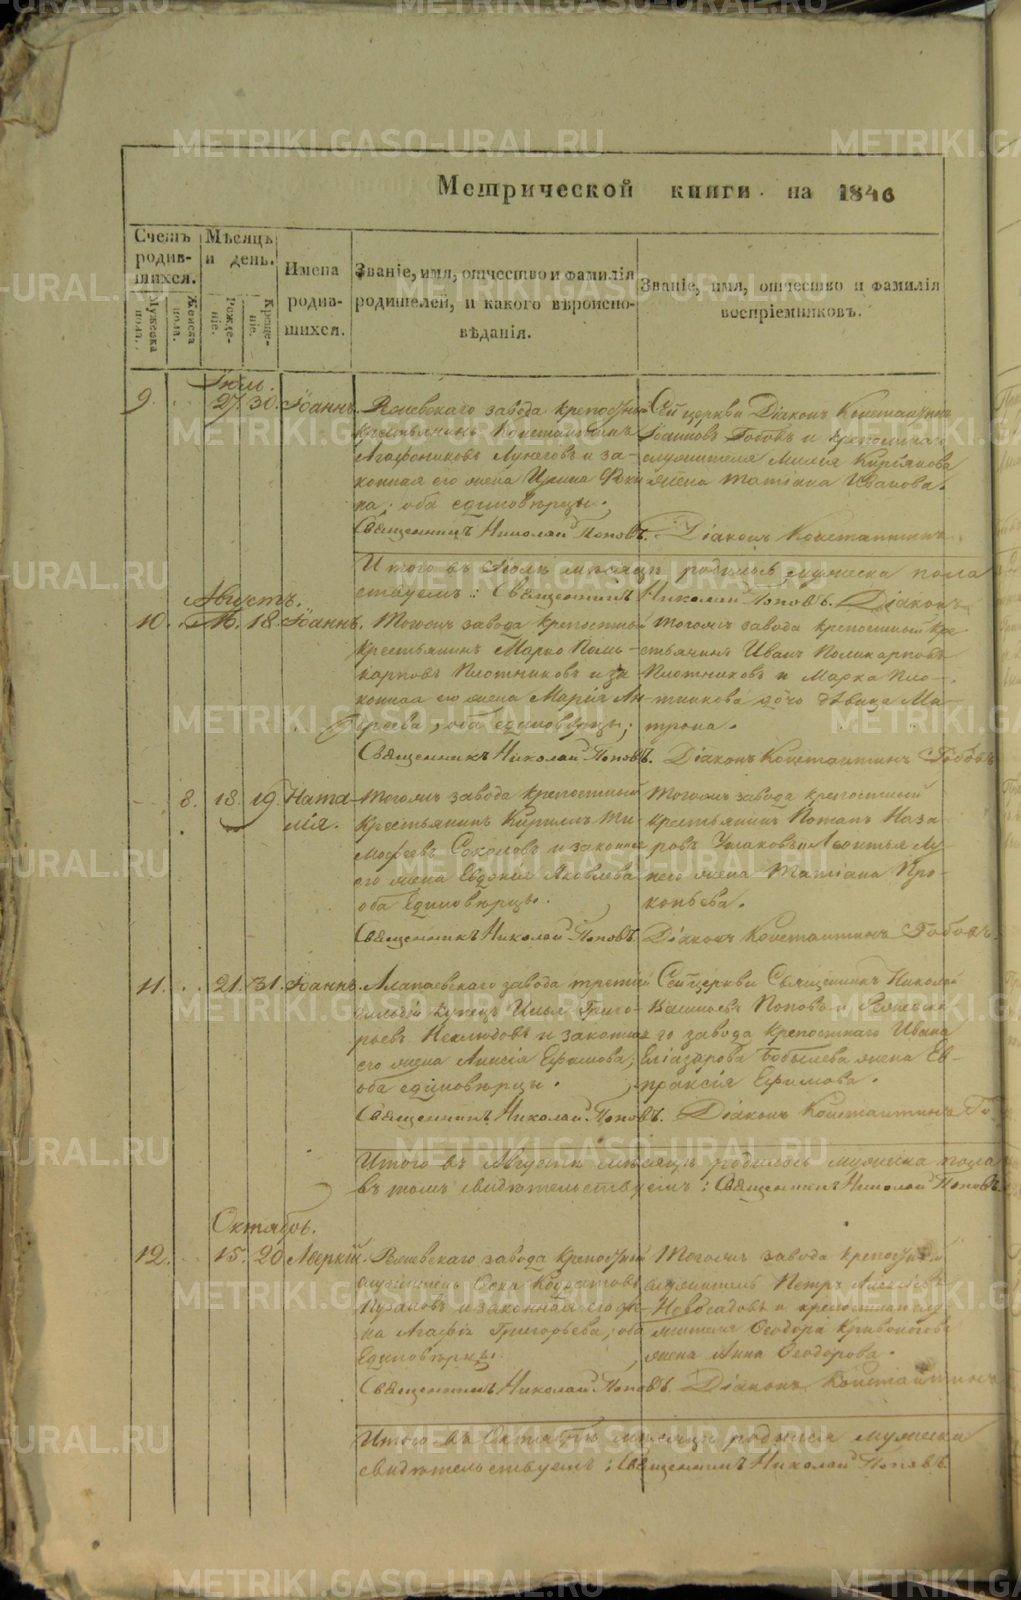 Метрической книги на 1846
Счетъ родив-шихся.
Мужеска пола.
Женска пола.
Мѣсяцъ и день.
Рожде-ніе.
Креще-ніе.
Имена родив-шихся.
Званіе, имя, отчество и фамилія родителей, и какого вѣроиспо-вѣданія.
Званіе, имя, отчество и фамилія воспріемниковъ.
Іюль.
9. 27. 30. Іоаннъ.
Режевскаго завода крепостной
крестьянинъ Константинъ
Агафониковъ Лунеговъ и за-
конная его жена Ирина Фоки
на; оба единовѣрцы.
Священникъ Николай Поповъ.
Сей церкви Діаконъ Константинъ
Іоанновъ Гобовъ и крепостнаго
служителя Кирьянова
жена Татіана Иванова.
Діаконъ Константинъ
Итого въ Іюлѣ мѣсяцѣ родился мужеска пола
Священникъ Николай Поповъ. Діаконъ
Августъ.
10. 18. Іоаннъ.
Тогожъ завода крепостный
крестьянинъ Марко Поли-
карповъ Плотниковъ и за
конная его жена Марія Ан
дреева; оба единовѣрцы;
Священникъ Николай Поповъ.
Тогожъ завода крепостный кре
стьянинъ Иванъ Поликарповъ
Плотниковъ и Марка Пло-
тникова дочь дѣвица Ма-
трона.
Діаконъ Константинъ Гобовъ
8. 18. 19. Ната-
лія.
Тогожъ завода крепостный
крестьянинъ Кирилъ Ти
мофеевъ Соколовъ и законная
его жена Евдокія Яковлева
оба Единовѣрцы.
Священникъ Николай Поповъ.
Тогожъ завода крепостный
крестьянинъ Потапъ Наза
ровъ Ушаковъ и
него жена Татіана Про-
копьева.
Діаконъ Константинъ Гобовъ
11. 21. 31. Іоаннъ.
Алапаевскаго завода третей
гильдіи купецъ Илья Григо-
рьевъ и законная
его жена Анисія Ефимова;
оба единовѣрцы.
Священникъ Николай Поповъ.
Сей церкви Священникъ Николай
Васильевъ Поповъ и Режевска
го завода крепостнаго Ивана
Еліазарова Бобылева жена Ев-
праксія Ефимова.
Діаконъ Константинъ Го
Итого въ Августѣ мѣсяцѣ родилось мужеска пола
въ томъ свидѣтельствуемъ: Священникъ Николай Поповъ
Октябрь.
12. 15. 20. Аверкій.
Режевскаго завода крепостной
служитель Кодратовъ
Пузановъ и законная его же-
на Агафія Григорьева; оба
Единовѣрцы.
Священникъ Николай Поповъ.
Тогожъ завода крепостной
служитель Петръ Алексѣевъ
и крепостнаго слу
жителя Ѳеодора Кривоногова
жена Анна Ѳеодорова.
Діаконъ Константинъ
Итого въ Октябрѣ мѣсяцѣ родился мужеска
свидѣтельствуемъ: Священникъ Николай Поповъ.
METRIKI.GASO-URAL.RU